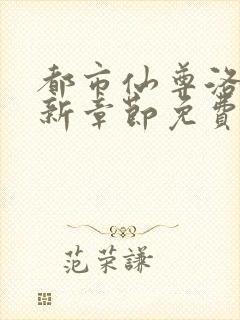 都市仙尊洛
新章節免費
范荣謙